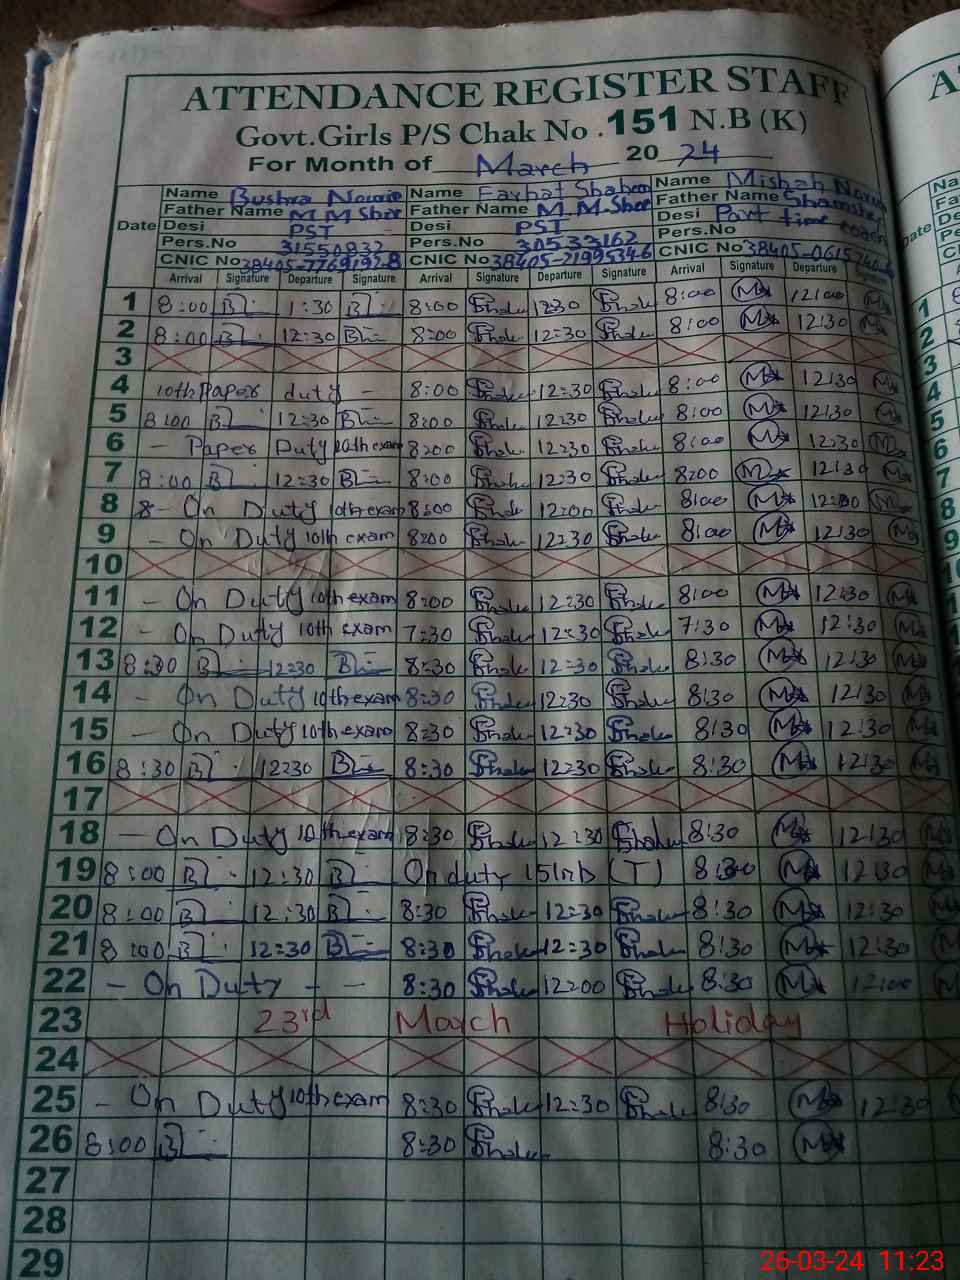 ATTENDANCE REGISTER STAFF
Govt.Girls P/S Chak No .151 N.B (K)
For Month of March 20 24
Date Name Bushra Name Farhat Shaheen Name Misbah
Father Name M M Sher Father Name M. M. Sher Father Name Shamsher
Desi PST Desi PST Desi Part time coach
Pers.No 31550832 Pers.No 30533162 Pers.No
CNIC No 38405-7769192-8 CNIC No 38405-2199534-6 CNIC No 38405-0615240-6
Arrival Signature Departure Signature Arrival Signature Departure Signature Arrival Signature Departure Signature
1 8:00 1:30 8:00 12:30 8:00 12:00
2 8:00 12:30 8:00 12:30 8:00 12:30
3
4 10th Paper duty - 8:00 12:30 8:00 12:30
5 8:00 12:30 8:00 12:30 8:00 12:30
6 - Paper Duty 10th exam 8:00 12:30 8:00 12:30
7 8:00 12:30 8:00 12:30 8:00 12:30
8 - On Duty 10th exam 8:00 12:00 8:00 12:00
9 - On Duty 10th exam 8:00 12:30 8:00 12:30
10
11 - On Duty 10th exam 8:00 12:30 8:00 12:30
12 - On Duty 10th exam 7:30 12:30 7:30 12:30
13 8:30 12:30 8:30 12:30 8:30 12:30
14 - On Duty 10th exam 8:30 12:30 8:30 12:30
15 - On Duty 10th exam 8:30 12:30 8:30 12:30
16 8:30 12:30 8:30 12:30 8:30 12:30
17
18 - On Duty 10th exam 8:30 12:30 8:30 12:30
19 8:00 12:30 On duty 151nb (T) 8:30 12:30
20 8:00 12:30 8:30 12:30 8:30 12:30
21 8:00 12:30 8:30 12:30 8:30 12:30
22 - On Duty - - 8:30 12:00 8:30 12:00
23 23rd March Holiday
24
25 - On Duty 10th exam 8:30 12:30 8:30 12:30
26 8:00 8:30 8:30
27
28
29
26-03-24 11:23